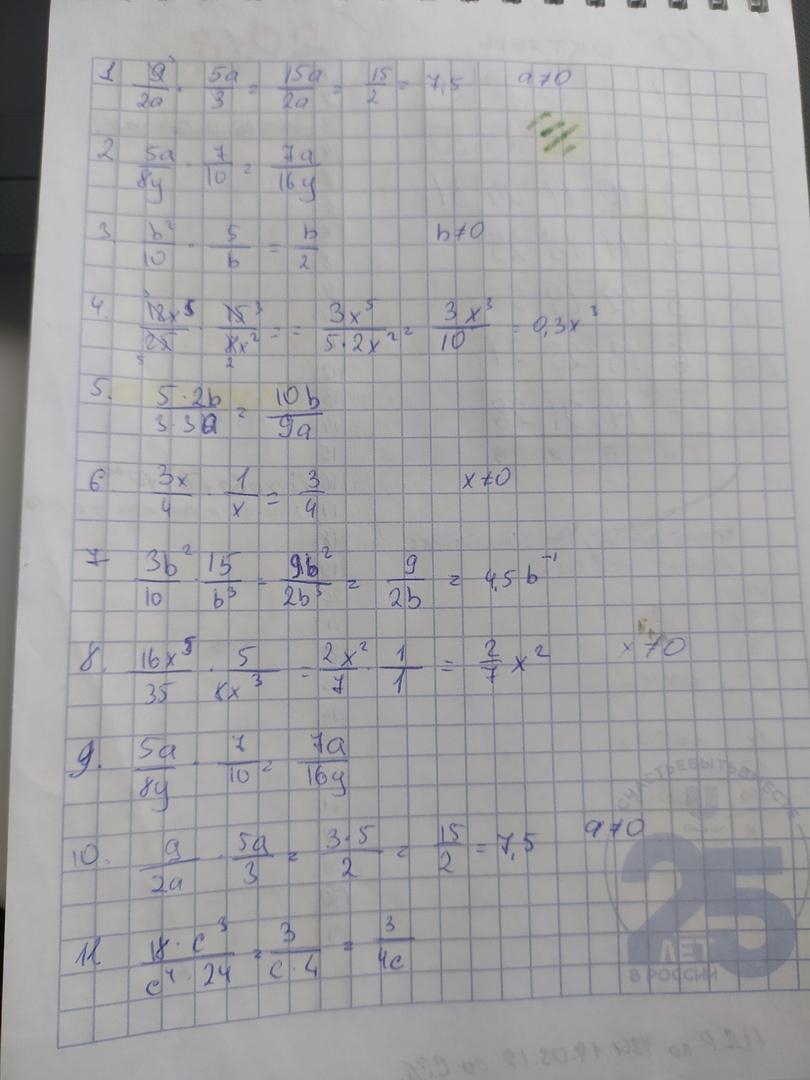 1 9/2a · 5a/3 = 15a/2a = 15/2 = 7,5 a≠0
2 5a/8y · 7/10 = 7a/16y
3. b²/10 · 5/b = b/2 b≠0
4. 18x⁵/25 · 15/8x² = = 3x⁵/5·2x² = 3x³/10 = 0,3x³
5. 5·2b/3·3a = 10b/9a
6. 3x/4 · 1/x = 3/4 x≠0
7 3b²/10 · 15/b³ = 9b²/2b³ = 9/2b = 4,5b⁻¹
8. 16x⁵/35 · 5/8x³ = 2x²/7 · 1/1 = 2/7 x² x≠0
9. 5a/8y · 7/10 = 7a/16y
10. 9/2a · 5a/3 = 3·5/2 = 15/2 = 7,5 a≠0
11 18·c³/c⁴·24 = 3/c·4 = 3/4c
СЧАСТЬЕ БЫТЬ ВМЕСТЕ
25
ЛЕТ
В РОССИИ